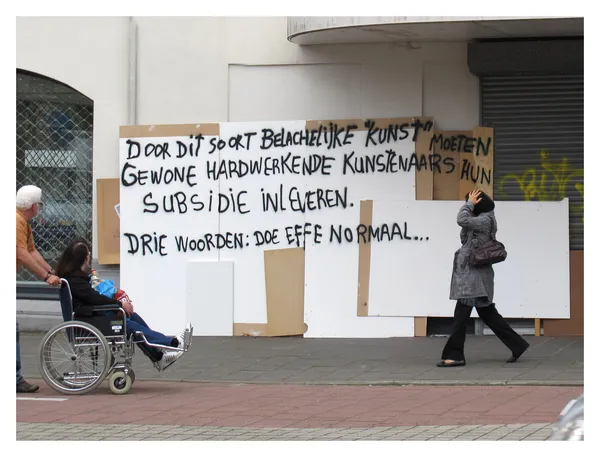 DOOR DIT SOORT BELACHELIJKE "KUNST" MOETEN
GEWONE HARDWERKENDE KUNSTENAARS HUN
SUBSIDIE INLEVEREN.
DRIE WOORDEN: DOE EFFE NORMAAL...